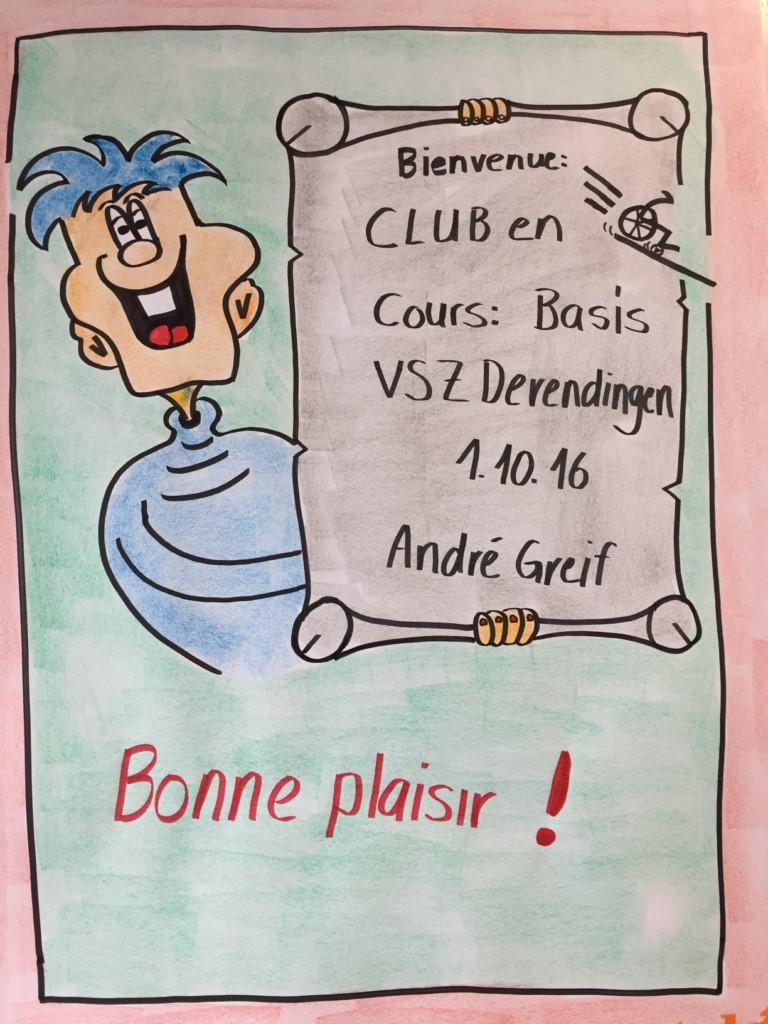 Bienvenue:
CLUB en
Cours: Basis
VSZ Derendingen
1.10.16
André Greif
Bonne plaisir !